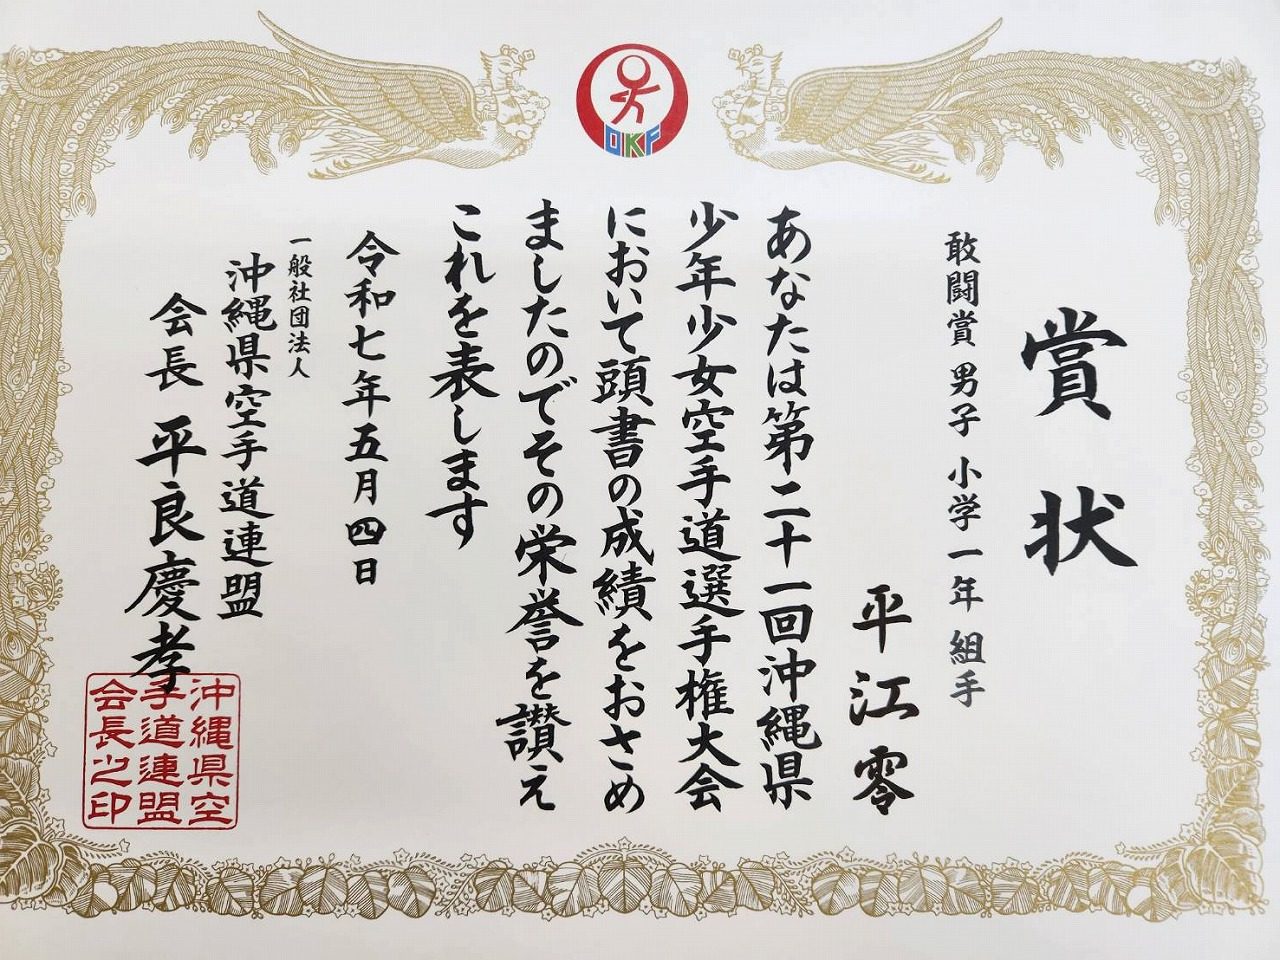 OKF
賞状
敢闘賞 男子 小学一年 組手
平江零
あなたは第二十一回沖縄県
少年少女空手道選手権大会
において頭書の成績をおさめ
ましたのでその栄誉を讃え
これを表します
令和七年五月四日
一般社団法人
沖縄県空手道連盟
会長 平良慶孝
沖縄県空
手道連盟
会長之印